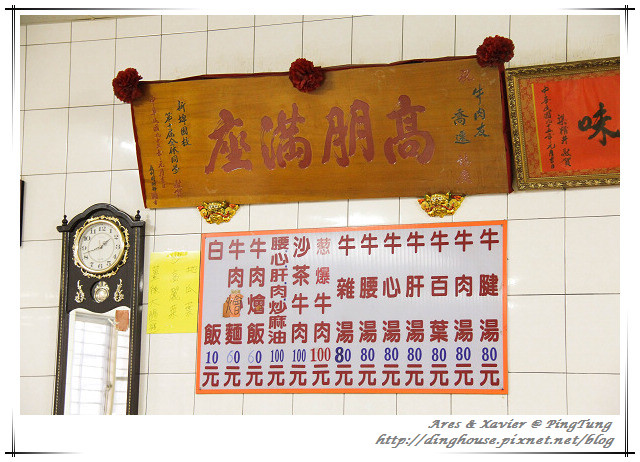 高朋滿座
牛肉友
喬遷
新埤國校
味
牛腱湯 80元
牛肉湯 80元
牛百葉湯 80元
牛肝湯 80元
牛心湯 80元
牛腰湯 80元
牛雜湯 80元
葱爆牛肉 100元
沙茶牛肉 100元
腰心肝肉炒麻油 100元
牛肉燴飯 60元
牛肉燴麵 60元
白飯 10元
Ares & Xavier @ PingTung
http://dinghouse.pixnet.net/blog